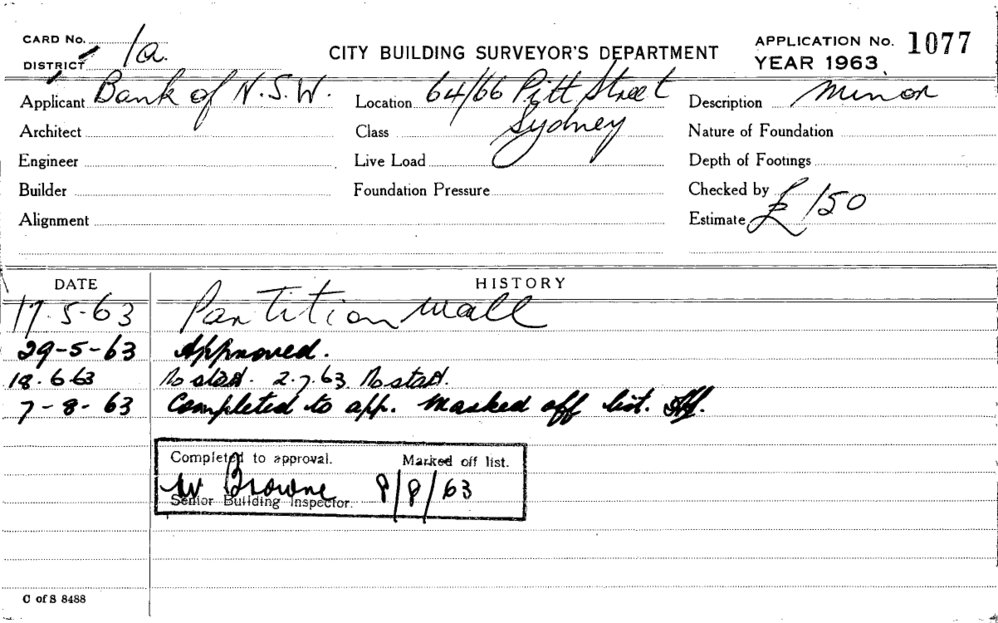 CARD No. 1a.
CITY BUILDING SURVEYOR'S DEPARTMENT
APPLICATION No. 1077
DISTRICT
YEAR 1963
Applicant Bank of N.S.W.
Location 64/66 Pitt Street
Description Minor
Architect
Class Sydney
Nature of Foundation
Engineer
Live Load
Depth of Footings
Builder
Foundation Pressure
Checked by
Alignment
Estimate £150
DATE HISTORY
17.5-63 Partition wall
29-5-63 Approved.
18.6 63 No start. 2.7.63 No start.
7-8-63 Completed to app. Marked off list.
Completed to approval. Marked off list.
W Browne 8/8/63
Senior Building Inspector.
C of S 8488